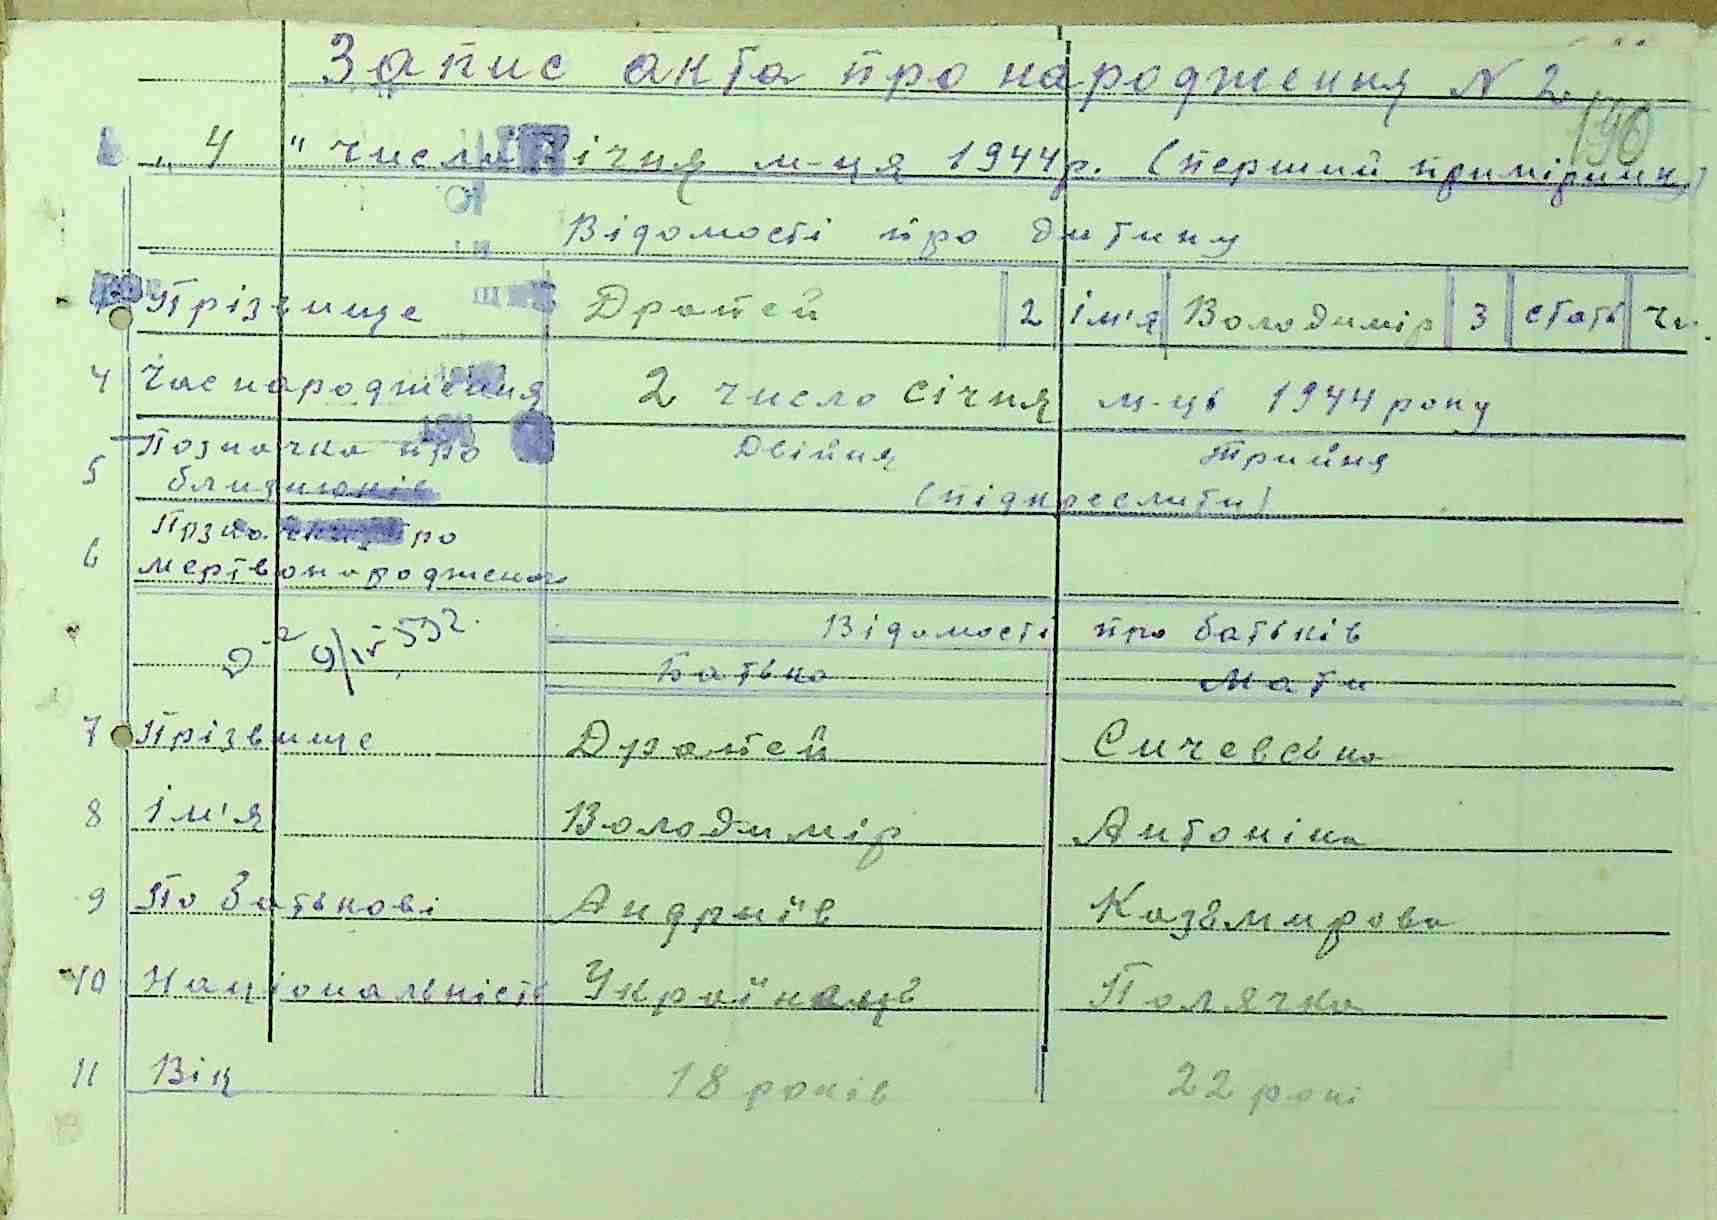 Запис акта про народження N 2
196
„ 4 " число січня м-ця 1944 р. (перший примірник)
Відомості про дитину
Прізвище Драпей 2 ім'я Володимір 3 стать чи.
4 Час народження 2 число січня м-ць 1944 року
5 Позначка про близнюків Двійня Трийня
(підкреслити)
6 Позначка про
мертвонароджених
Відомості про батьків
Батько Мати
7 Прізвище Драпей Сичевська
8 Ім'я Володимір Антоніна
9 По батькові Андріїв Казѣмирова
10 Національність Українець Полячка
11 Вік 18 років 22 рокі